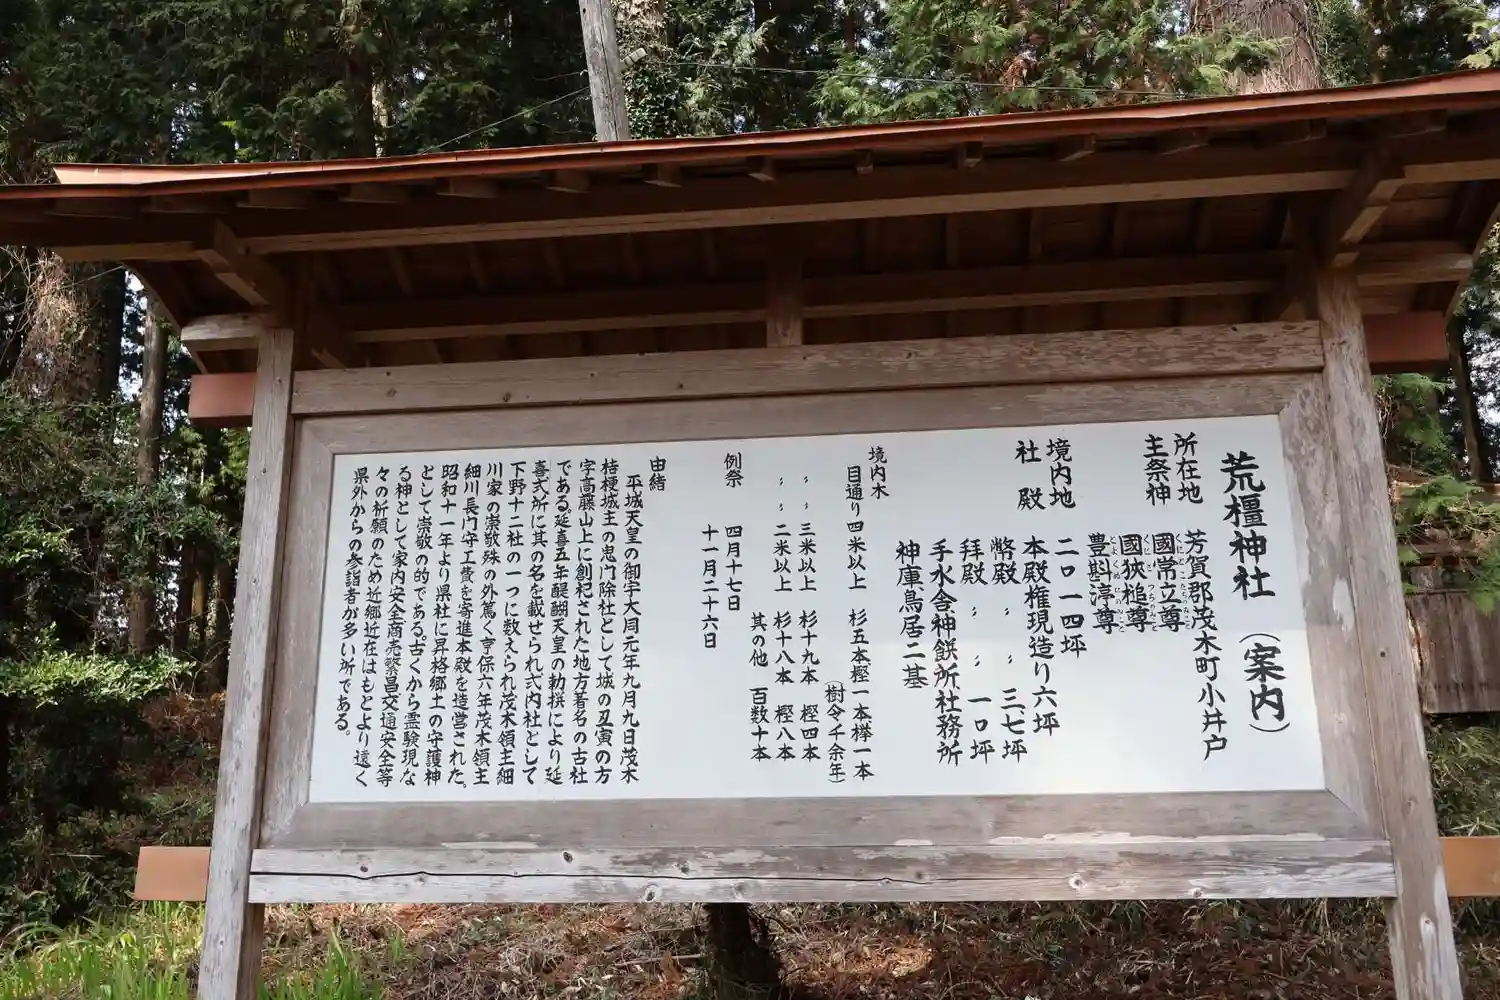 荒橿神社 (案内)
所在地 芳賀郡茂木町小井戸
主祭神 國常立尊
國狹槌尊
豊斟渟尊
境内地 二〇一四坪
社殿 本殿権現造り六坪
幣殿 〃 三七坪
拝殿 〃 一〇坪
手水舎神饌所社務所
神庫鳥居二基
境内木
目通り四米以上 杉五本樫一本欅一本
(樹令千余年)
〃 〃 三米以上 杉十九本 樫四本
〃 〃 二米以上 杉十八本 樫八本
其の他 百数十本
例祭 四月十七日
十一月二十六日
由緒
平城天皇の御宇大同元年九月九日茂木
桔梗城主の鬼門除社として城の丑寅の方
字高藤山上に創祀された地方著名の古社
である。延喜五年醍醐天皇の勅撰により延
喜式所に其の名を載せられ式内社として
下野十二社の一つに数えられ茂木領主細
川家の崇敬殊の外篤く享保六年茂木領主
細川長門守工費を寄進本殿を造営された。
昭和十一年より県社に昇格郷土の守護神
として崇敬の的である。古くから霊験現な
る神として家内安全商売繁昌交通安全等
々の祈願のため近郷近在はもとより遠く
県外からの参詣者が多い所である。